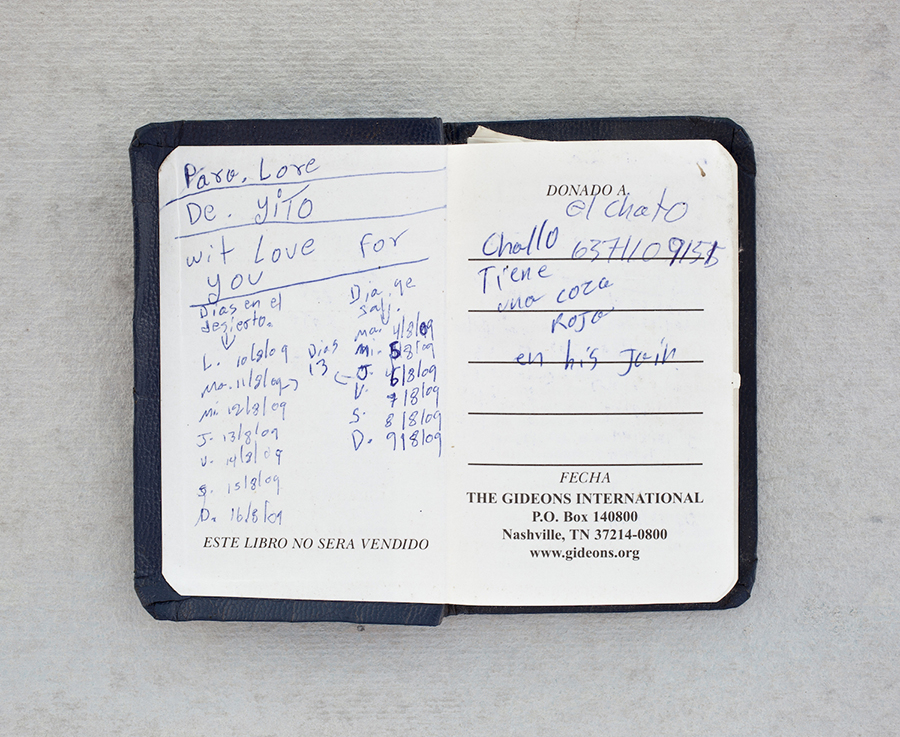 Para. Love
De. YiTO
wit Love for
you
Dias en el
desierto.
L. 10/8/09
Ma. 11/8/09
Mi. 12/8/09
J. 13/8/09
V. 14/8/09
S. 15/8/09
D. 16/8/09
Dias
13
Dia. qe
sali.
ma. 4/8/09
Mi. 5/8/09
J. 6/8/09
V. 7/8/09
S. 8/8/09
D. 9/8/09
ESTE LIBRO NO SERA VENDIDO
DONADO A.
el chato
Challo 637/1109155
Tiene
una coza
Roja
en his Jain
FECHA
THE GIDEONS INTERNATIONAL
P.O. Box 140800
Nashville, TN 37214-0800
www.gideons.org